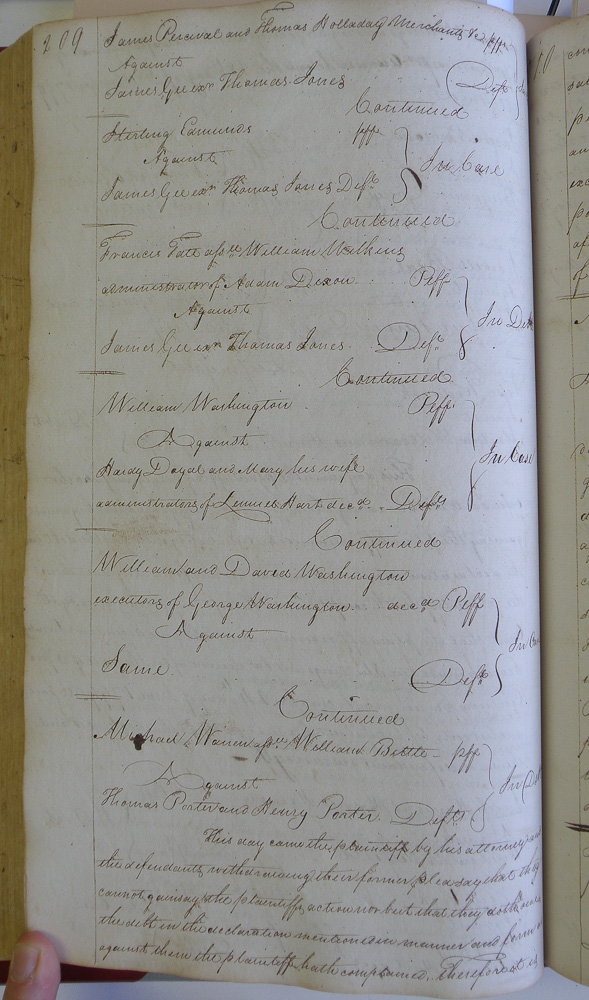 209
James Percival and Thomas Holladay Merchants &c plffs
Against
James Gee exr Thomas Jones Deft
Continued
Stirling Edmunds plff
Against In Case
James Gee exr Thomas Jones Deft
Continued
Francis Tatt assee William Wilkins
administrator of Adam Dixon Plff
Against In Debt
James Gee exr Thomas Jones Deft
Continued
William Washington Plff
Against In Case
Hardy Doyal and Mary his wife
administrators of Lemuel Hart decd Defts
Continued
William and David Washington
executors of George Washington decd Plff
Against In Case
Same Defts
Continued
Michael Warren assee William Bittle plff
Against In Debt
Thomas Porter and Henry Porter Defts
This day came the plaintiff by his attorney and
the defendants withdrawing their former plea say that they
cannot gainsay the plaintiffs action nor but that they doth owe
the debt in the declaration mentioned in manner and form
against them the plaintiff hath complained. Therefore it is